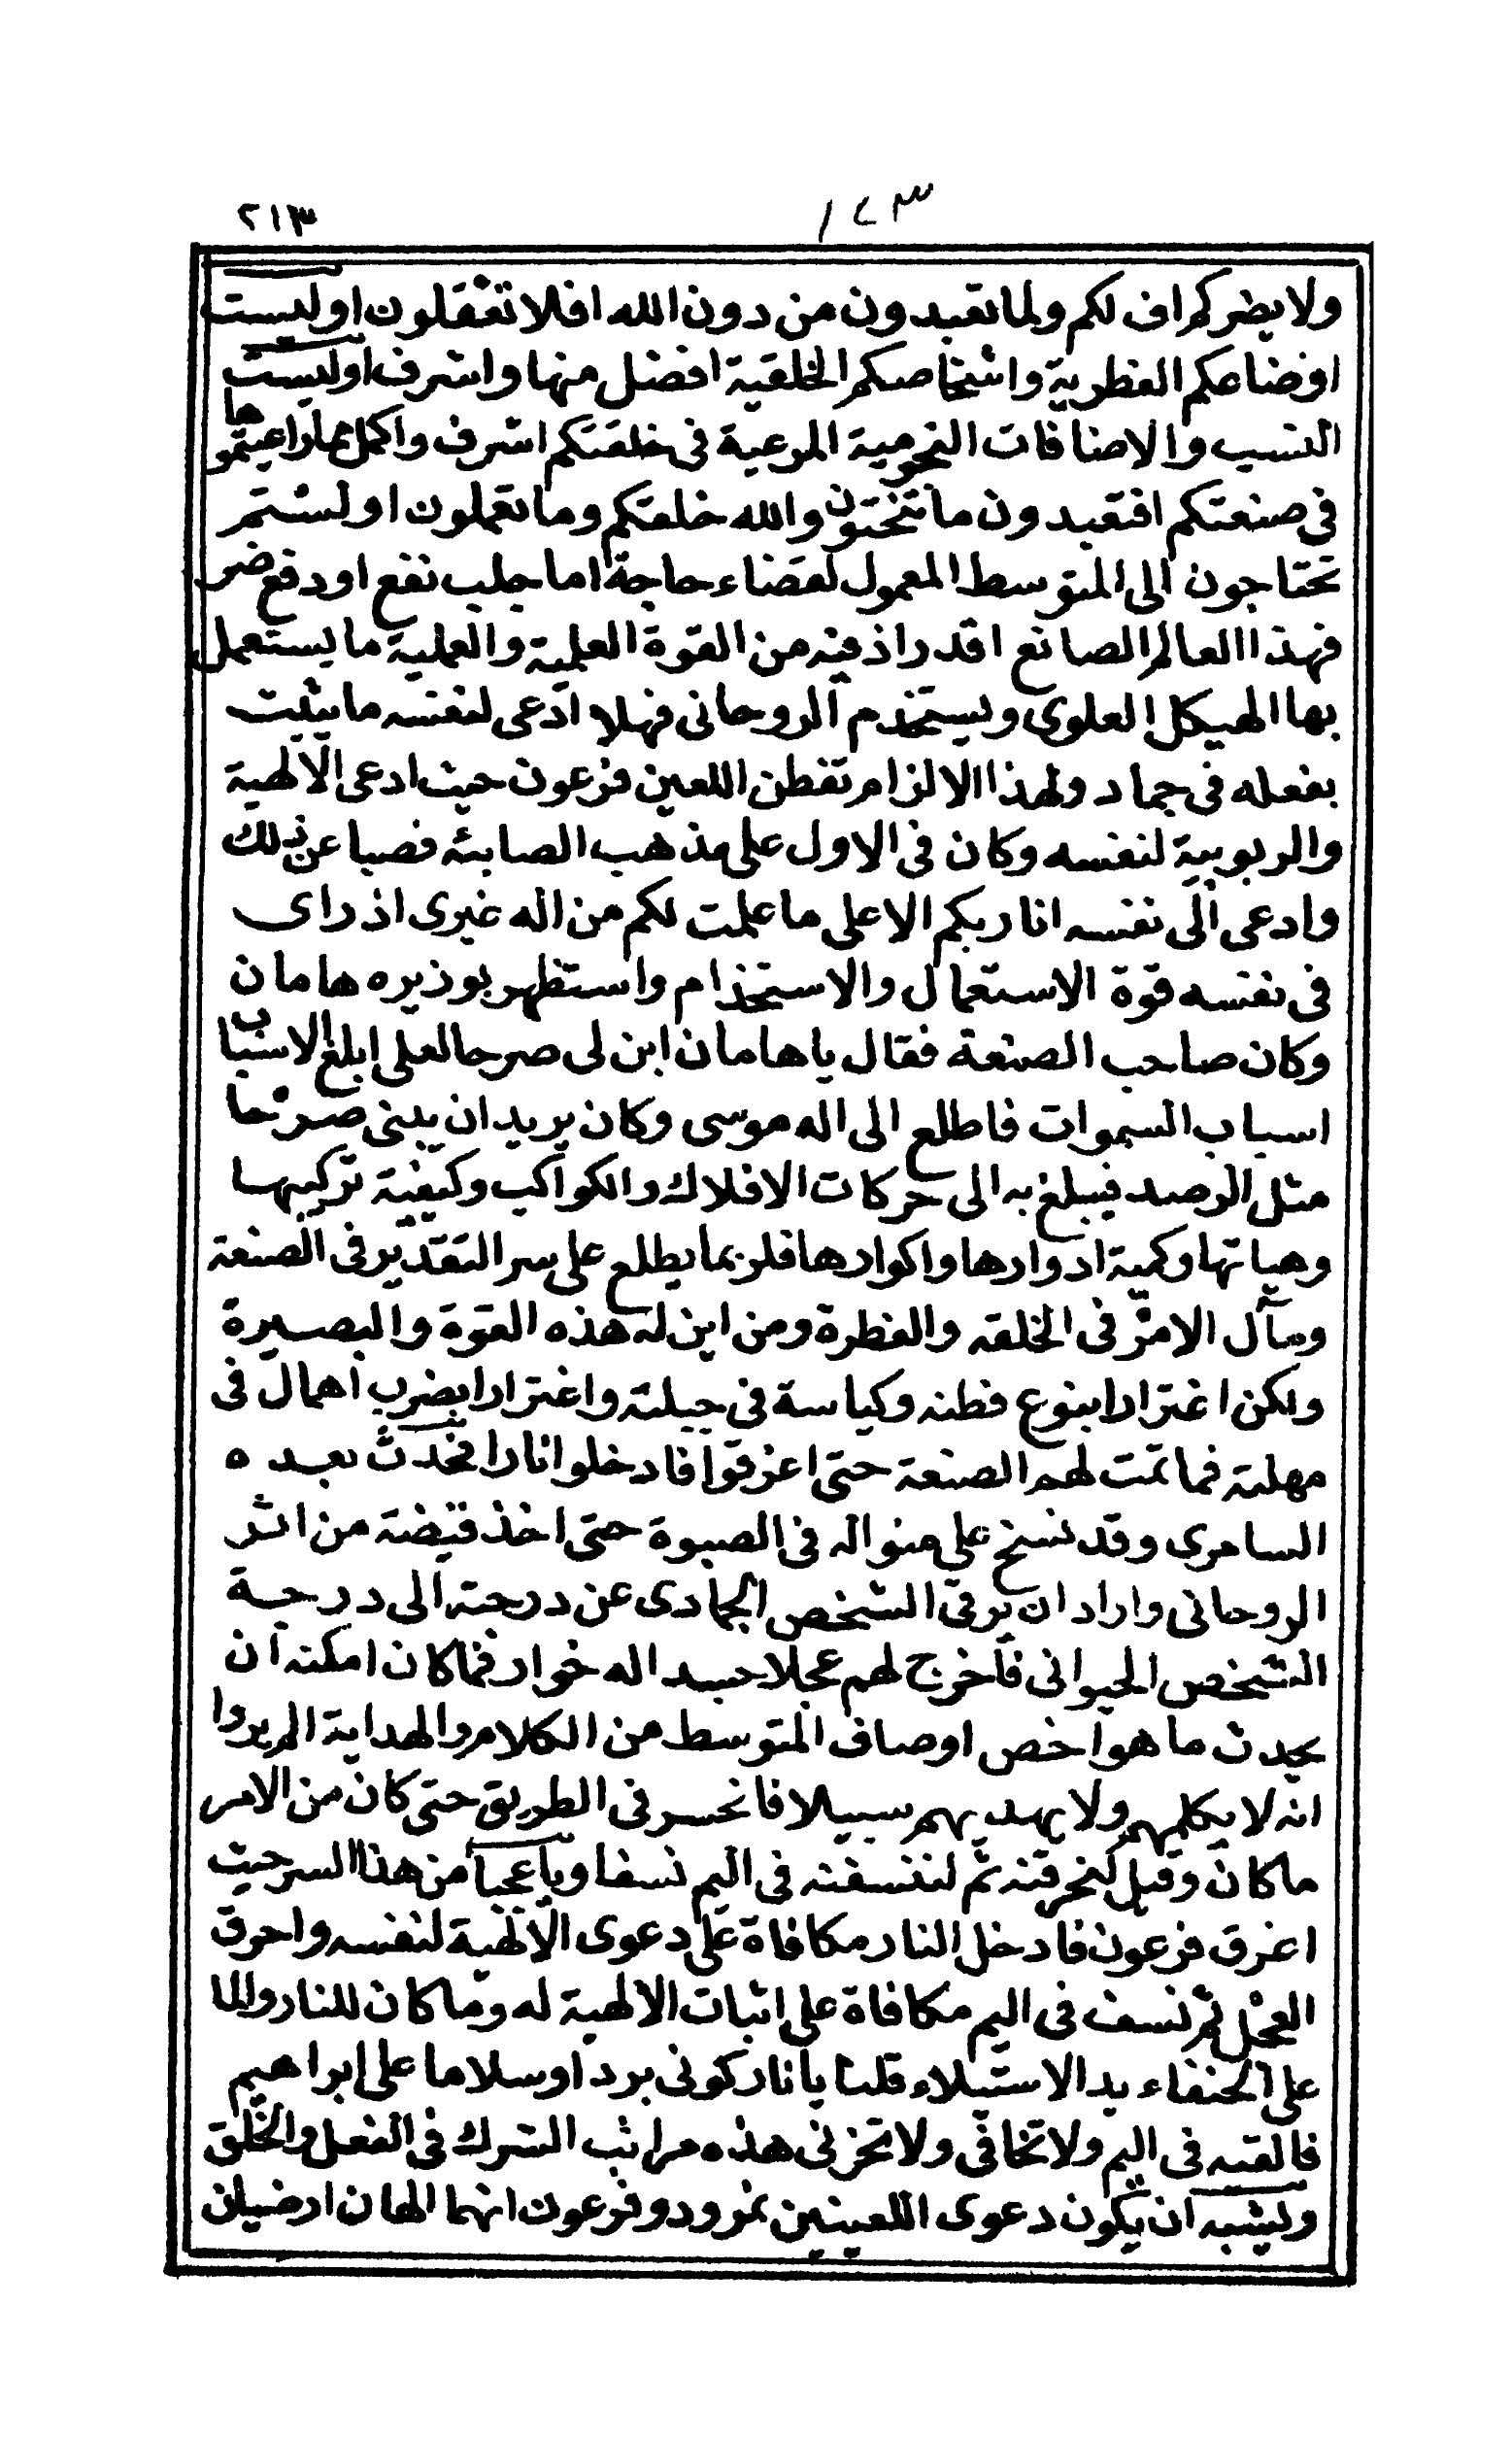 ١٤٣ ٢١٣
ولا يضركم اف لكم ولما تعبدون من دون الله افلا تعقلون اوليست
اوضاعكم الفطرية واشخاصكم الخلقية افضل منها واشرف اوليست
النسب والاضافات النجومية المرعية فى خلقتكم اشرف واكمل مما راعيتموها
فى صنعتكم افتعبدون ما تنحتون والله خلقكم وما تعملون اولستم
تحتاجون الى المتوسط المعمول لقضاء حاجة اما جلب نفع او دفع ضر
فهذا العالم الصانع اقدر اذ فيه من القوة العلمية والعملية ما يستعمل
بها الهيكل العلوى ويستخدم الروحانى فهلا ادعى لنفسه ما يثبت
بفعله فى جماد ولهذا الالزام تفطن اللعين فرعون حيث ادعى الالهية
والربوبية لنفسه وكان فى الاول على مذهب الصابئه فصبا عن ذلك
وادعى الى نفسه انا ربكم الاعلى ما علمت لكم من اله غيرى اذ راى
فى نفسه قوة الاستعمال والاستخدام واستظهر بوزيره هامان
وكان صاحب الصنعة فقال يا هامان ابن لى صرحا لعلى ابلغ الاسباب
اسباب السموات فاطلع الى اله موسى وكان يريد ان يبنى صرحا
مثل الرصد فيبلغ به الى حركات الافلاك والكواكب وكيفية تركيبها
وهياتها وكمية ادوارها واكوارها فلربما يطلع على سر التقدير فى الصنعة
ومآل الامر فى الخلقه والفطرة ومن اين له هذه القوة والبصيرة
ولكن اغترارا بنوع فطنه وكياسة فى جبلته واغترارا بضرب اهمال فى
مهلته فما تمت لهم الصنعة حتى اغرقوا فادخلوا نارا فحدث بعده
السامرى وقد نسج على منواله فى الصبوة حتى اخذ قبضة من اثر
الروحانى واراد ان يرقى الشخص الجمادى عن درجته الى درجة
الشخص الحيوانى فاخرج لهم عجلا جسدا له خوار فما كان امكنه ان
يحدث ما هو اخص اوصاف المتوسط من الكلام والهداية الم يروا
انه لا يكلمهم ولا يهديهم سبيلا فانحسر فى الطريق حتى كان من الامر
ما كان وقيل لنحرقنه ثم لننسفنه فى اليم نسفا ويا عجبا من هذا السر حيث
اغرق فرعون فادخل النار مكافاة على دعوى الالهية لنفسه واحرق
العجل ثم نسف فى اليم مكافاة على اثبات الالهية له وما كان للنار والما
على الحنفاء يد الاستيلاء قلنا يا نار كونى بردا وسلاما على ابراهيم
فالقيه فى اليم ولا تخافى ولا تحزنى هذه مراتب الشرك فى الفعل والخلق
ويشبه ان يكون دعوى اللعينين نمرود وفرعون انهما الهان ارضيان